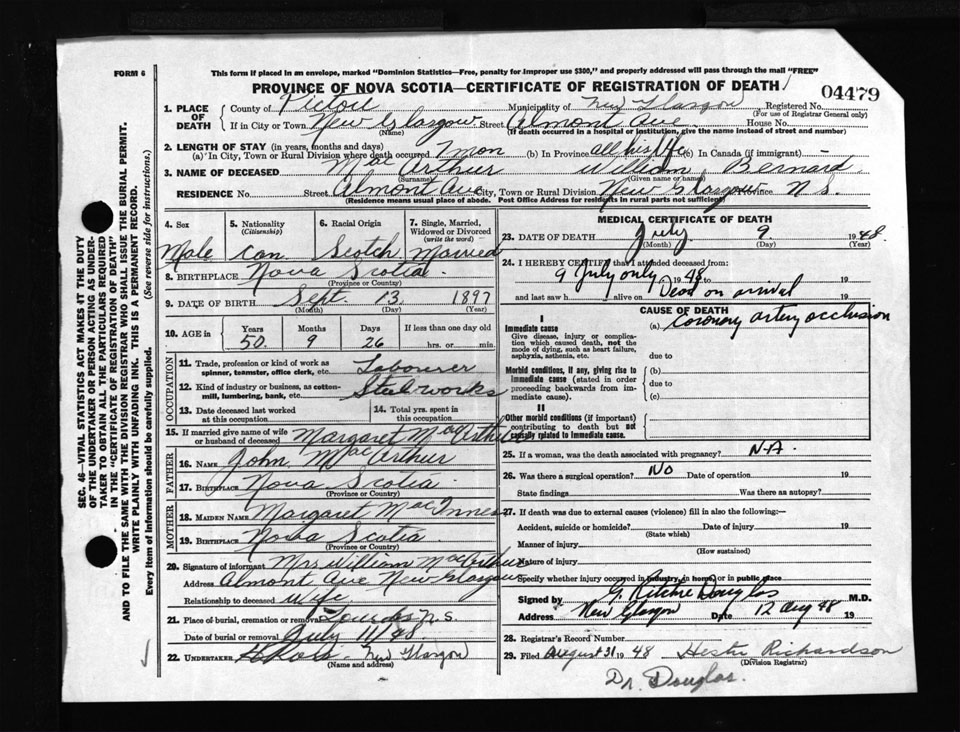 FORM 6
This form if placed in an envelope, marked "Dominion Statistics—Free, penalty for improper use $300," and properly addressed will pass through the mail "FREE"
PROVINCE OF NOVA SCOTIA—CERTIFICATE OF REGISTRATION OF DEATH
04479
1. PLACE OF DEATH County of Pictou Municipality of New Glasgow Registered No.
(For use of Registrar General only)
If in City or Town New Glasgow Street Almont Ave. House No.
(Name) (If death occurred in a hospital or institution, give the name instead of street and number)
2. LENGTH OF STAY (in years, months and days)
(a) In City, Town or Rural Division where death occurred 7 mon (b) In Province all his life (c) In Canada (if immigrant)
3. NAME OF DECEASED MacArthur William Bernard
(Surname) (Given name or names)
RESIDENCE No. Street Almont Ave City, Town or Rural Division New Glasgow Province N.S.
(Residence means usual place of abode. Post Office Address for residents in rural parts not sufficient)
4. Sex 5. Nationality (Citizenship) 6. Racial Origin 7. Single, Married, Widowed or Divorced (write the word)
Male Can. Scotch Married
8. BIRTHPLACE Nova Scotia.
(Province or Country)
9. DATE OF BIRTH Sept. 13. 1897
(Month) (Day) (Year)
10. AGE in Years Months Days If less than one day old
50. 9 26 hrs. or min.
OCCUPATION
11. Trade, profession or kind of work as spinner, teamster, office clerk, etc. Labourer
12. Kind of industry or business, as cotton-mill, lumbering, bank, etc. Steelworks
13. Date deceased last worked at this occupation 14. Total yrs. spent in this occupation
15. If married give name of wife or husband of deceased Margaret MacArthur
FATHER
16. NAME John MacArthur
17. BIRTHPLACE Nova Scotia.
(Province or Country)
MOTHER
18. MAIDEN NAME Margaret MacInnes
19. BIRTHPLACE Nova Scotia
(Province or Country)
20. Signature of informant Mrs William MacArthur
Address Almont Ave New Glasgow
Relationship to deceased Wife
21. Place of burial, cremation or removal Lourdes N.S.
Date of burial or removal July 11/48
22. UNDERTAKER New Glasgow
(Name and address)
MEDICAL CERTIFICATE OF DEATH
23. DATE OF DEATH July 9. 1948.
(Month) (Day) (Year)
24. I HEREBY CERTIFY that I attended deceased from:
9 July only 1948 to 19
and last saw h alive on Dead on arrival 19
CAUSE OF DEATH
I
Immediate cause (a) Coronary artery occlusion
Give disease, injury or complication which caused death, not the mode of dying, such as heart failure, asphyxia, asthenia, etc. due to
Morbid conditions, if any, giving rise to immediate cause (stated in order proceeding backwards from immediate cause). (b)
due to
(c)
II
Other morbid conditions (if important) contributing to death but not causally related to immediate cause.
25. If a woman, was the death associated with pregnancy? N.A.
26. Was there a surgical operation? No Date of operation 19
State findings Was there an autopsy?
27. If death was due to external causes (violence) fill in also the following:—
Accident, suicide or homicide? Date of injury 19
(State which)
Manner of injury
(How sustained)
Nature of injury
Specify whether injury occurred in industry, in home or in public place
Signed by G. Ritchie Douglas M.D.
Address New Glasgow Date 12 Aug 48 19
28. Registrar's Record Number
29. Filed August 31 1948 Hester Richardson
(Division Registrar)
Dr. Douglas.
SEC. 46—VITAL STATISTICS ACT MAKES IT THE DUTY
OF THE UNDERTAKER OR PERSON ACTING AS UNDER-
TAKER TO OBTAIN ALL THE PARTICULARS REQUIRED
IN THE "CERTIFICATE OF REGISTRATION OF DEATH"
AND TO FILE THE SAME WITH THE DIVISION REGISTRAR WHO SHALL ISSUE THE BURIAL PERMIT.
WRITE PLAINLY WITH UNFADING INK. THIS IS A PERMANENT RECORD.
Every item of information should be carefully supplied. (See reverse side for instructions.)